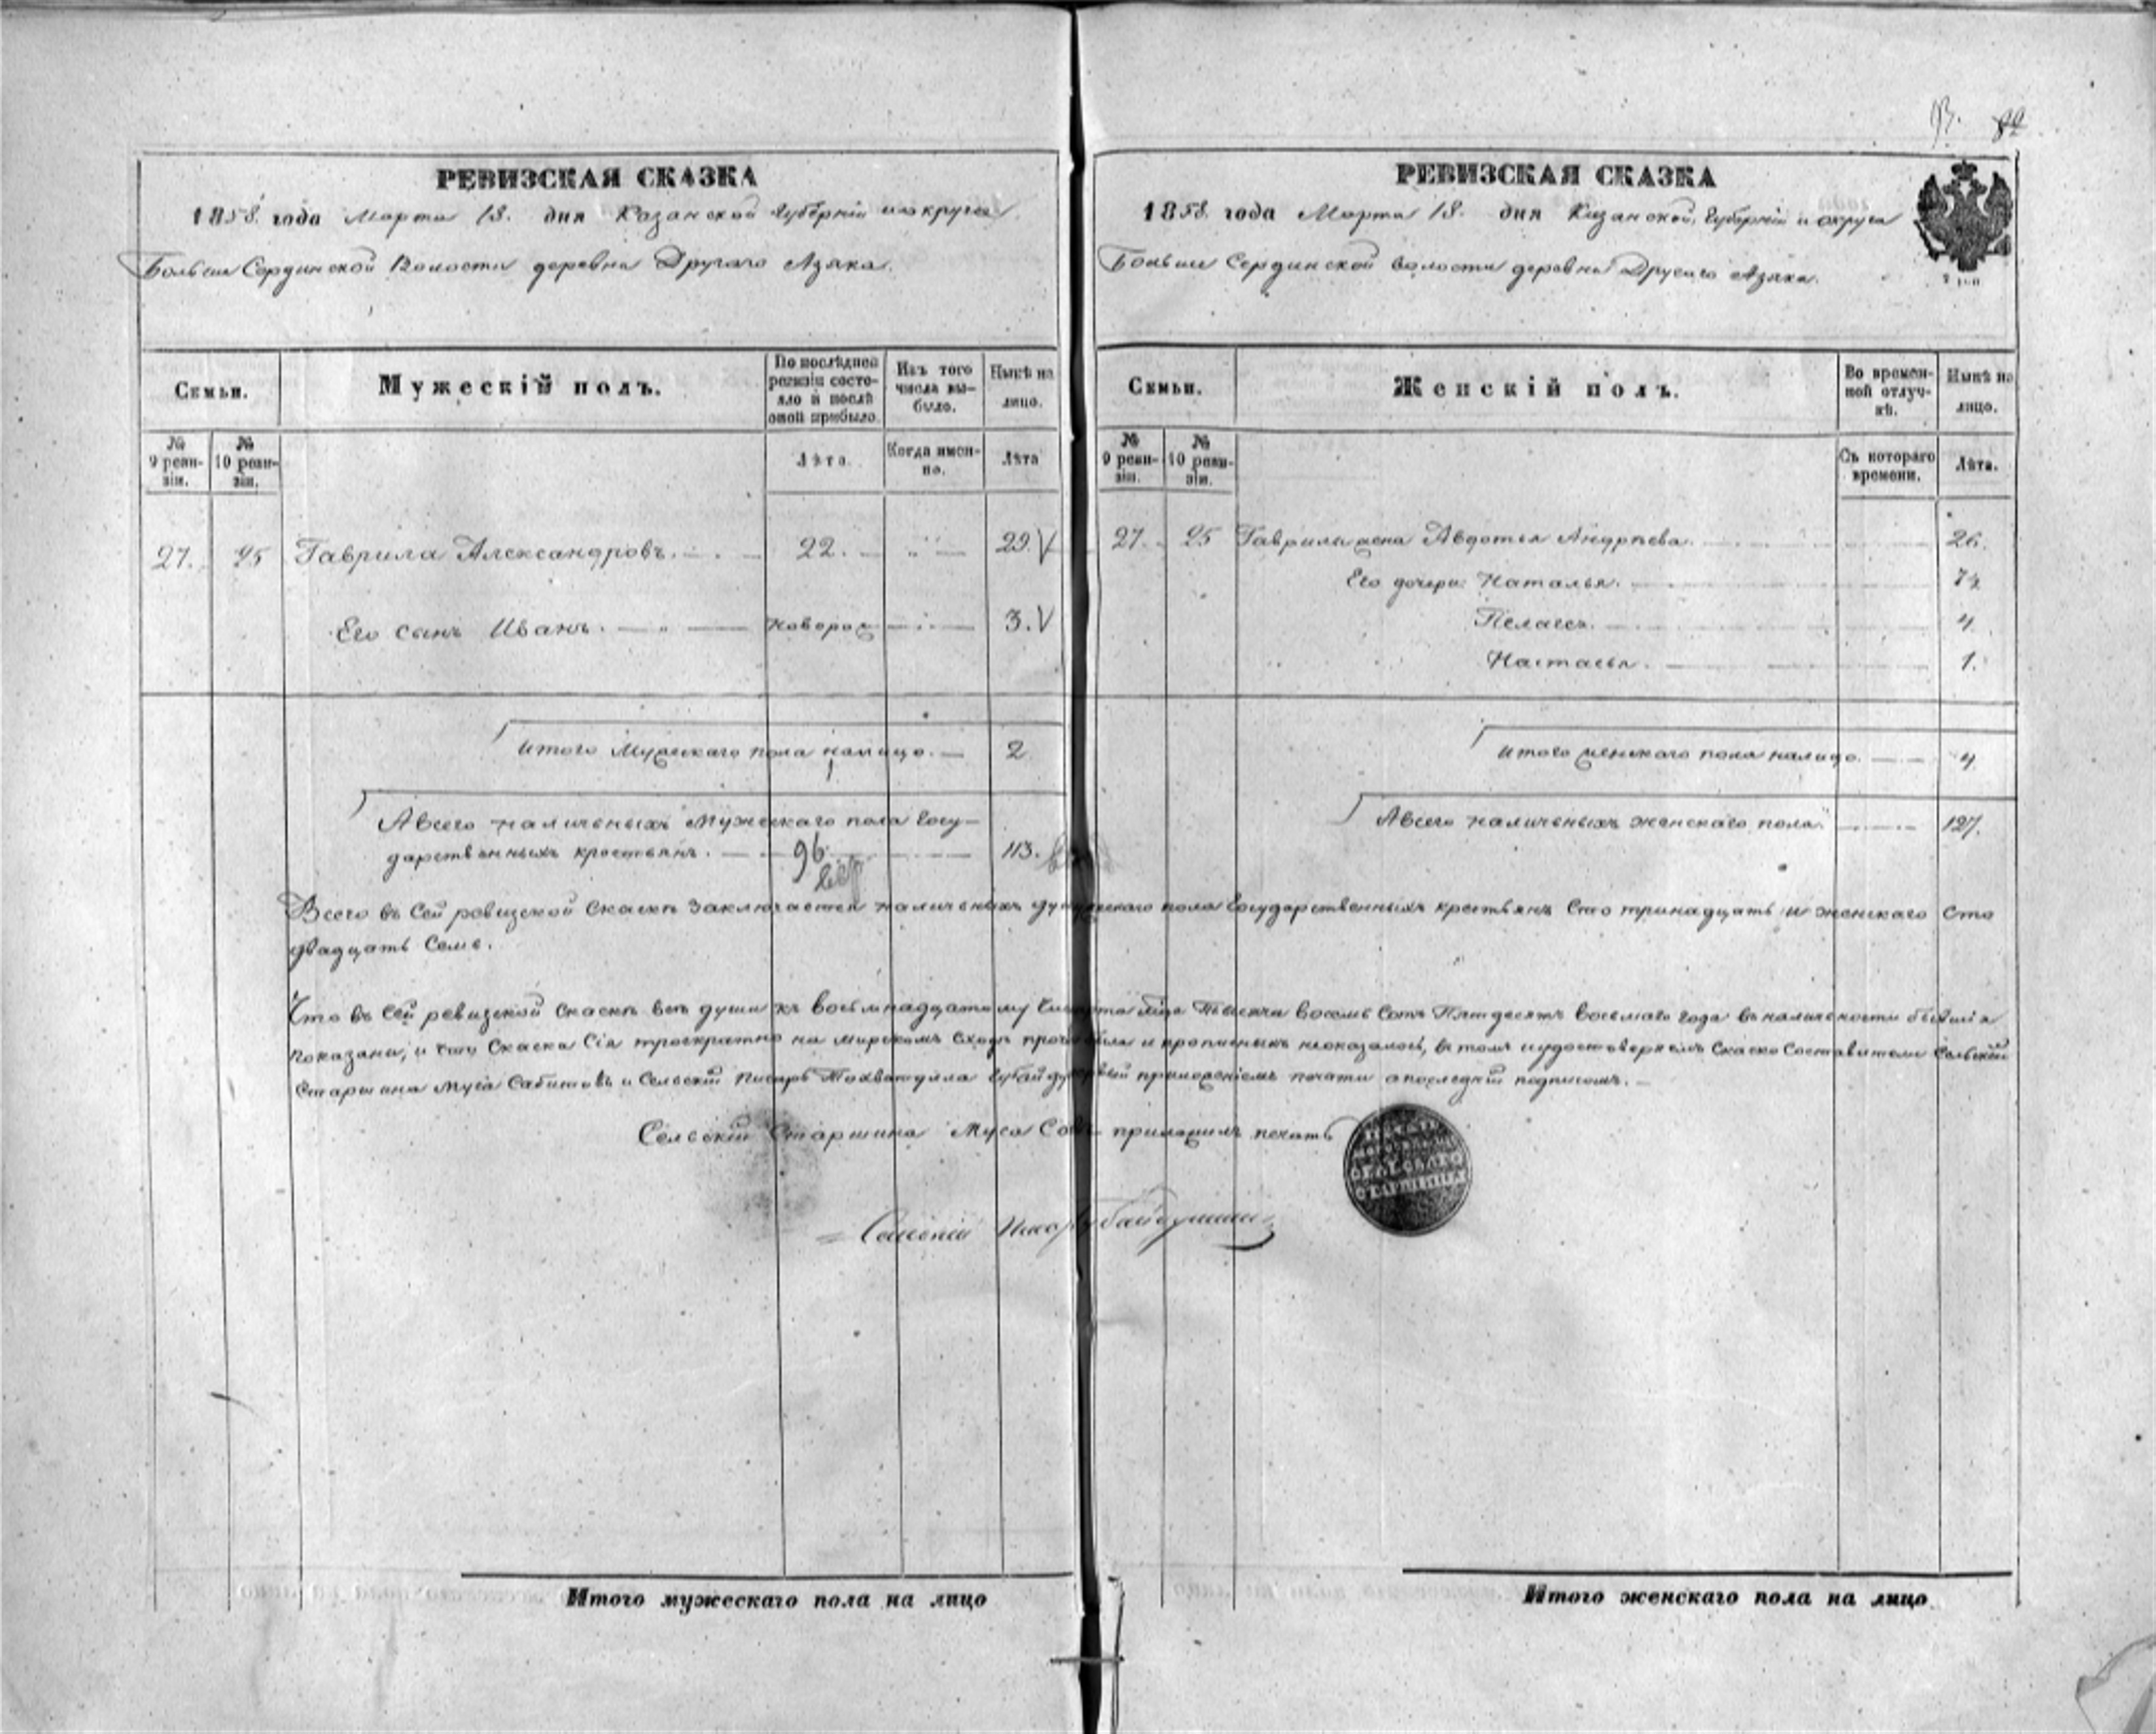 93. 82
РЕВИЗСКАЯ СКАЗКА
1858 года Марта 18. дня Казанской Губерніи и округа
Больше Сердинской Волости деревни Другаго Азяка.
Семьи.
Мужескій полъ.
По послѣдней ревизіи состояло и послѣ оной прибыло.
Изъ того числа выбыло.
Нынѣ на лицо.
№ 9 ревизіи.
№ 10 ревизіи.
Лѣта.
Когда именно.
Лѣта
27. 25 Гаврила Александровъ. 22. 29. V
Его сынъ Иванъ. новорож 3. V
Итого Мужескаго пола налицо. 2
А всего наличныхъ Мужескаго пола Госу-
дарственныхъ крестьянъ. 96. 113.
РЕВИЗСКАЯ СКАЗКА
1858 года Марта 18. дня Казанской Губерніи и округа
Больше Сердинской волости деревни Другаго Азяка.
Семьи.
Женскій полъ.
Во временной отлучкѣ.
Нынѣ на лицо.
№ 9 ревизіи.
№ 10 ревизіи.
Съ котораго времени.
Лѣта.
27. 25 Гаврилы жена Авдотья Андрѣева. 26.
Его дочери: Наталья. 7½
Пелагея. 4
Настасья. 1.
Итого женскаго пола налицо. 4
А всего наличныхъ женскаго пола 127.
Всего въ сей ревизской Сказкѣ заключается наличныхъ пола Государственныхъ крестьянъ Сто тринадцать и женскаго Сто
двадцать Семь.
Что въ сей ревизской Сказкѣ всѣ души къ восьмнадцатому Тысяча восемь Сотъ Пятьдесятъ восьмаго года въ наличности бывшія
показаны, и что Сказка Сія троекратно на мирскомъ сходѣ и прописныхъ неоказалось, въ томъ и удостовѣряемъ Сказко Составители Сельскій
Старшина Муса Сабитовъ и Сельскій Писарь приложеніемъ печати а последній подписомъ.
Сельскій Старшина Муса приложилъ печать
СЕЛЬСКАГО
СТАРШИНЫ
Сельскій
Итого мужескаго пола на лицо
Итого женскаго пола на лицо